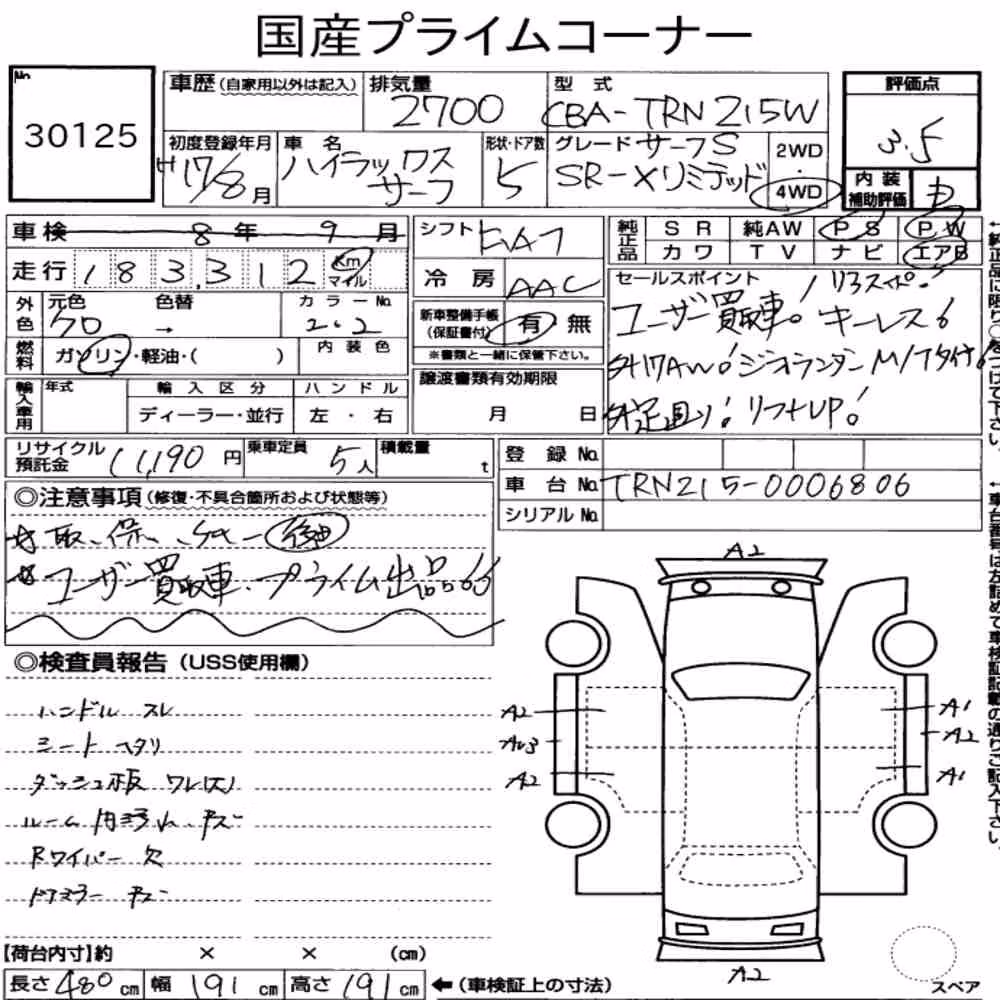 国産プライムコーナー
No.
30125
車歴(自家用以外は記入)
排気量
2700
型式
CBA-TRN215W
評価点
3.5
初度登録年月
H17/8月
車名
ハイラックス
サーフ
形状・ドア数
5
グレード サーフS
SR-Xリミテッド
2WD
・
4WD
内装
補助評価
車検 8年 9月
走行 183,312 Km
マイル
シフト FAT
冷房 AAC
純正品
SR 純AW PS PW
カワ TV ナビ エアB
外色
元色 クロ
色替 →
カラーNo.
202
燃料
ガソリン・軽油・( )
内装色
新車整備手帳
(保証書付)
有・無
※書類と一緒に保管下さい。
セールスポイント
リヤスポ!
ユーザー買取車。キーレス
外17AW!ジオランダーM/Tタイヤ
リフトUP!
輸入車用
年式
輸入区分
ディーラー・並行
ハンドル
左・右
譲渡書類有効期限
月 日
リサイクル
預託金 11,190円
乗車定員 5人
積載量 t
登録No.
車台No. TRN215-0006806
シリアルNo.
◎注意事項(修復・不具合箇所および状態等)
取、保、
ユーザー買取車、プライム出品
◎検査員報告(USS使用欄)
ハンドル スレ
シート ヘタリ
ダッシュ板 ワレ(大)
ルーム内汚れ、キズ
Rワイパー 欠
ドアミラー キズ
A2
A2
A1
A2
A2
A1
A2
スペア
【荷台内寸】約 × × (cm)
長さ 480 cm 幅 191 cm 高さ 191 cm ←(車検証上の寸法)
←車台番号は左詰めで車検証記載の通りご記入下さい。